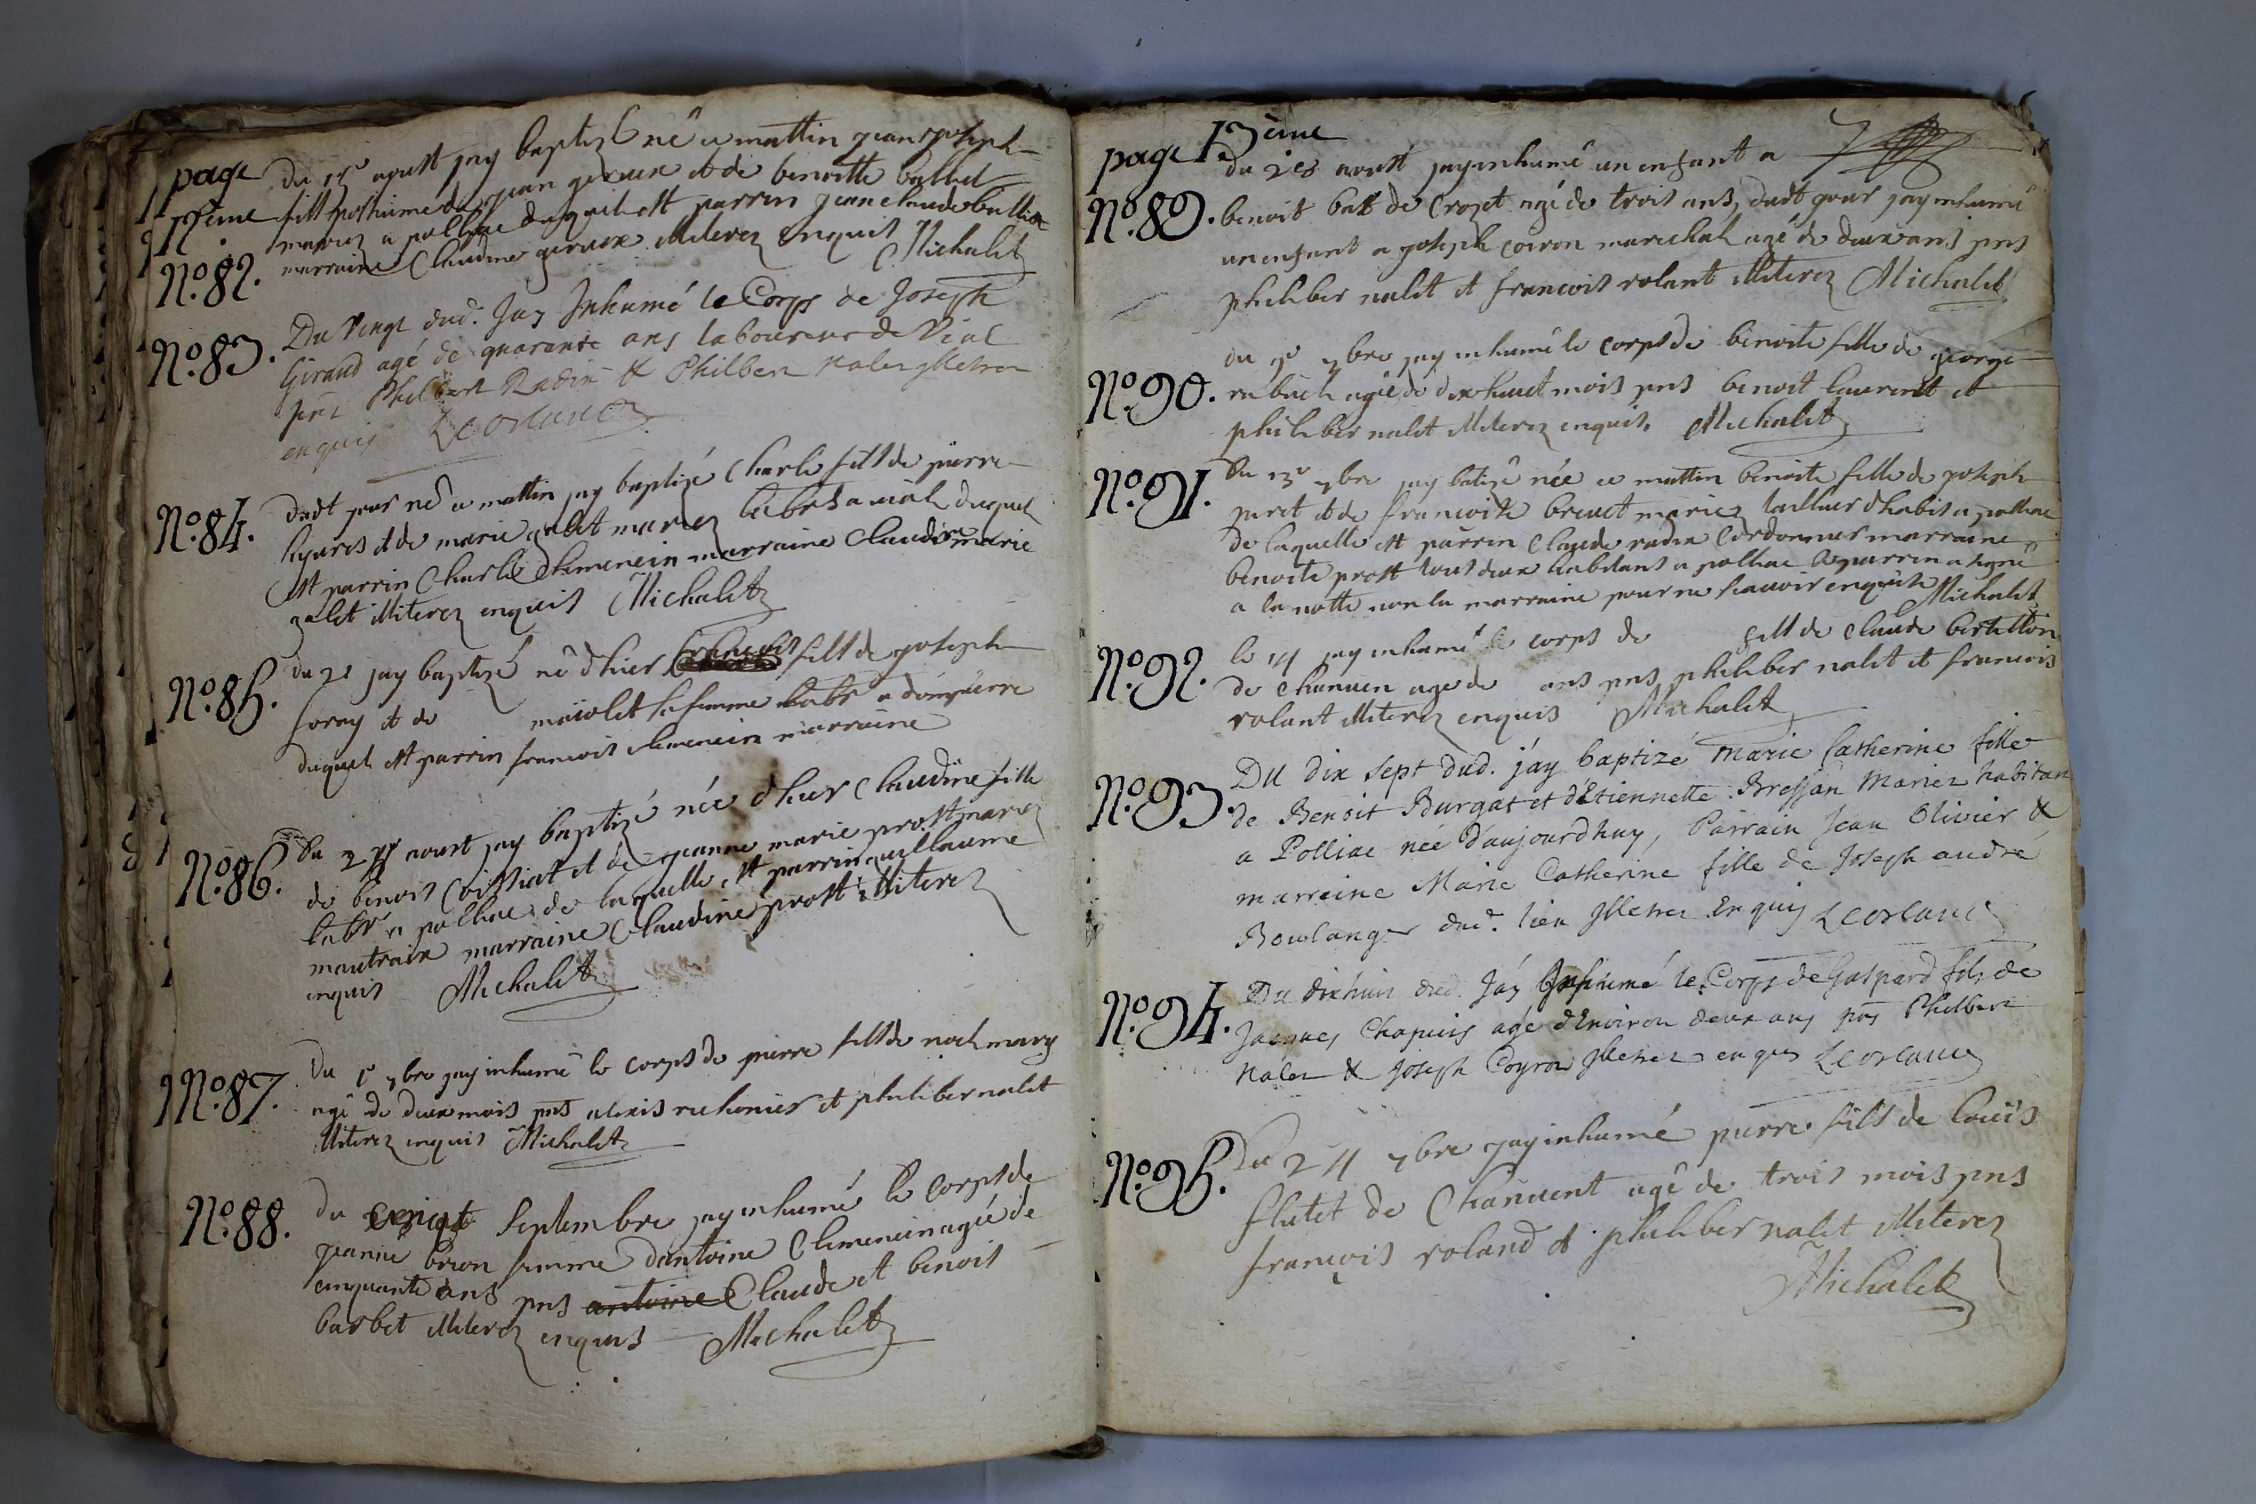 page
12ème
Nº.82.
du 15e aoust jay baptizé né ce mattin jean joseph
fils posthume de jean geraux et de benoitte ballet
mariez a polliac duquel est parrin jean claude
marraine Claudine geraux illiterez enquis Michalet
Nº.83.
Du Vingt dud. Jay Inhumé le Corps de Joseph
Giraud agé de quarante ans laboureur de Vial
pnt Philbert Radix & Philber Nalez Illetrez
enquis Leorlanez
Nº.84.
dudt jour né ce mattin jay baptizé Charle fils de pierre
et de marie galet mariez labrs a vial duquel
est parrin Charle Chemenein marraine Claudine marie
galet illiterez enquis Michalet
Nº.85.
du 21 jay baptizé né dhier francois fils de joseph
foray et de maiolet sa femme labr a
duquel est parrin francois chemenein marraine
Nº.86.
Du aoust jay baptizé née dhier Claudine fille
de benoit Coissiat et de jeanne marie prost mariez
labr a polliac de laquelle est parrin guillaume
mautraix marraine Claudine prost illiterez
enquis Michalet
Nº.87.
Du 1e 7bre jay inhumé le corps de pierre fils de noel mary
agé de deux mois pnts alexis richonier et philiber nalet
illiterez enquis Michalet
Nº.88.
du Septembre jay inhumé le corps de
jeanne brion femme dantoine Chemenein agée de
cinquante ans pns antoine Claude et benoit
barbet illiterez enquis Michalet
page 13ème
du 28 aoust jay inhumé un enfant a
Nº.89.
benoit bat de Crozet agé de trois ans, dudt jour jay inhumé
un enfant a joseph coiron marechal agé de deux ans pns
philiber nalet et francois rolant illiterez Michalet
Nº.90.
du 9e 7bre jay inhumé le corps de benoite fille de george
agée de dix huict mois pns benoit laurent et
philiber nalet illiterez enquis. Michalet
Nº.91.
Du 13e 7bre jay batizé née ce mattin benoite fille de joseph
et de francoise brevet mariez tailleur dhabit a polliac
de laquelle est parrin Claude radix Cordonnier marraine
benoite prost tous deux habitans a polliac le parrin a signé
a la notte non la marraine pour ne scavoir enquise Michalet
Nº.92.
le 14 jay inhumé le corps de fils de claude bertillon
de chanuen age de ans pns philiber nalet et francois
rolant illiterez enquis Michalet
Nº.93.
Du dix sept dud. jáy baptizé Marie Catherine fille
de Benoit Burgat et d'Etiennette Bressan Mariez habitan
a Polliac née d'aujourdhuy, Parrain Jean Olivier &
marreine Marie Catherine fille de Joseph andré
Boulanger dud. lieu Illetrez Enquis Leorlanez
Nº.94.
Du dixhuit dud. Jáy Inhumé le Corps de Gaspard fils de
Jacques Chapuis agé d'Environ deux ans pns Philbert
Nalez & Joseph Coyron Illetrez enquis Leorlanez
Nº.95.
Du 24 7bre jay inhumé pierre fils de louïs
flutet de Chanuent agé de trois mois pns
françois roland et philiber nalet illiterez
Michalet